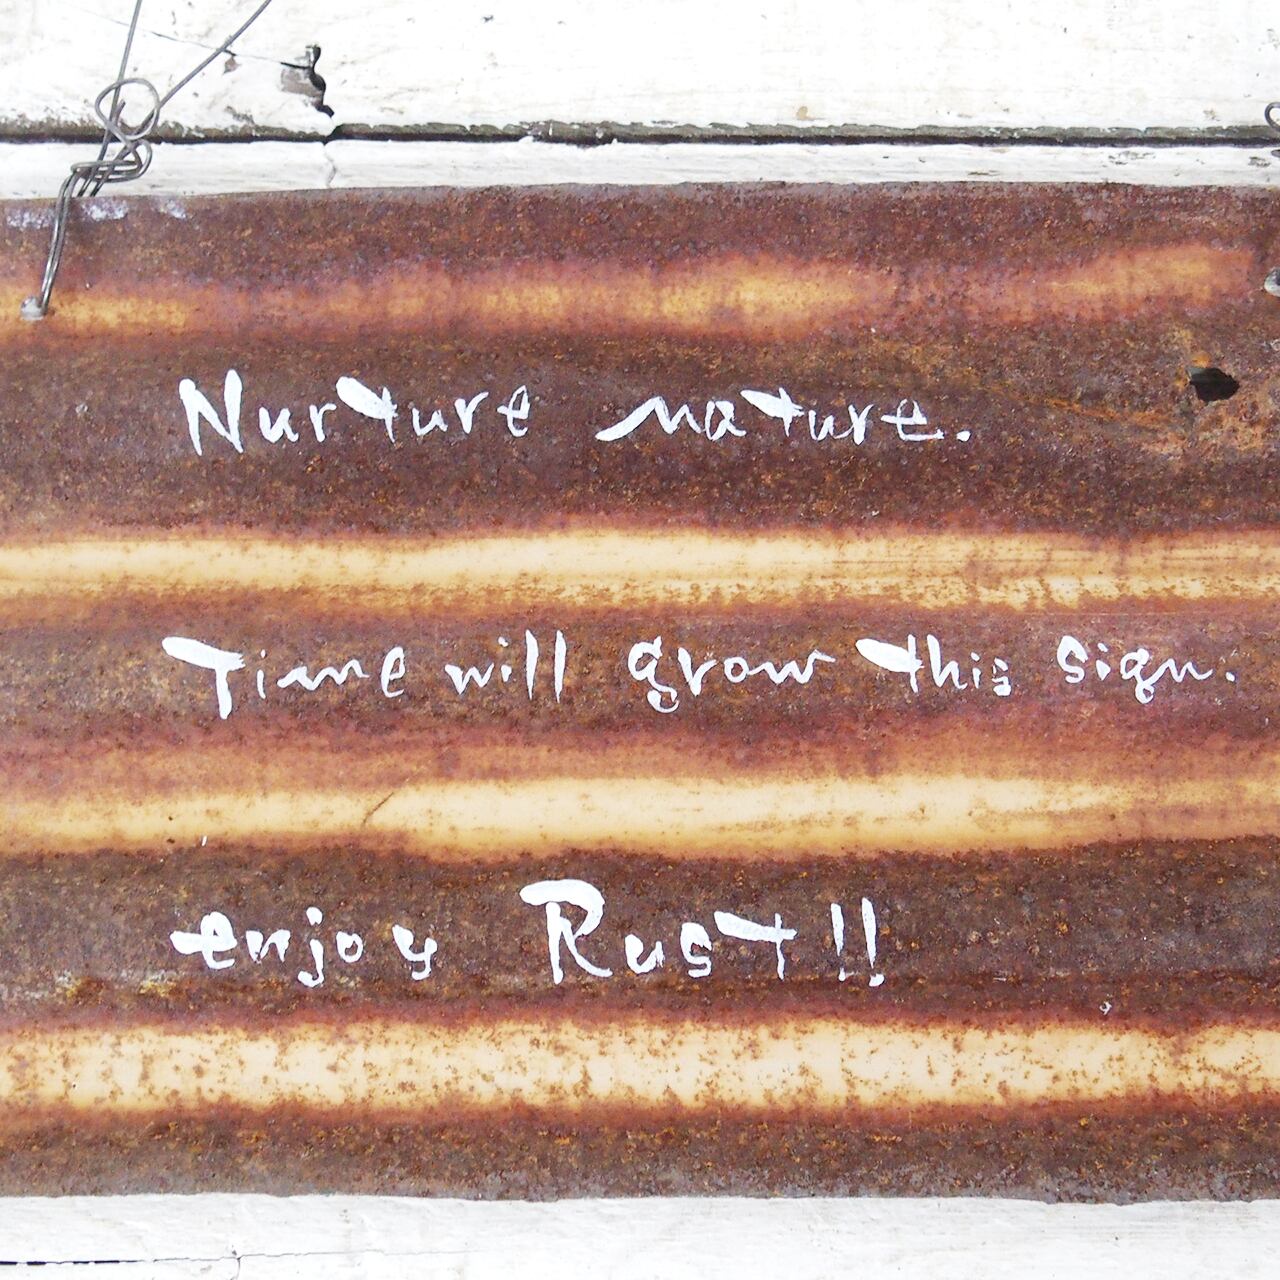 Nurture nature.
Time will grow this sign.
enjoy Rust!!